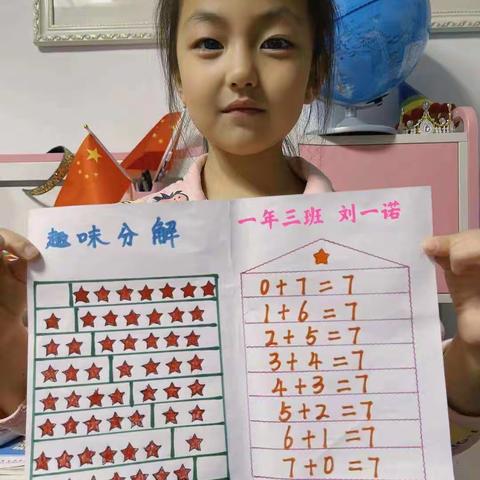 趣味分解
一年三班 刘一诺
0+7=7
1+6=7
2+5=7
3+4=7
4+3=7
5+2=7
6+1=7
7+0=7